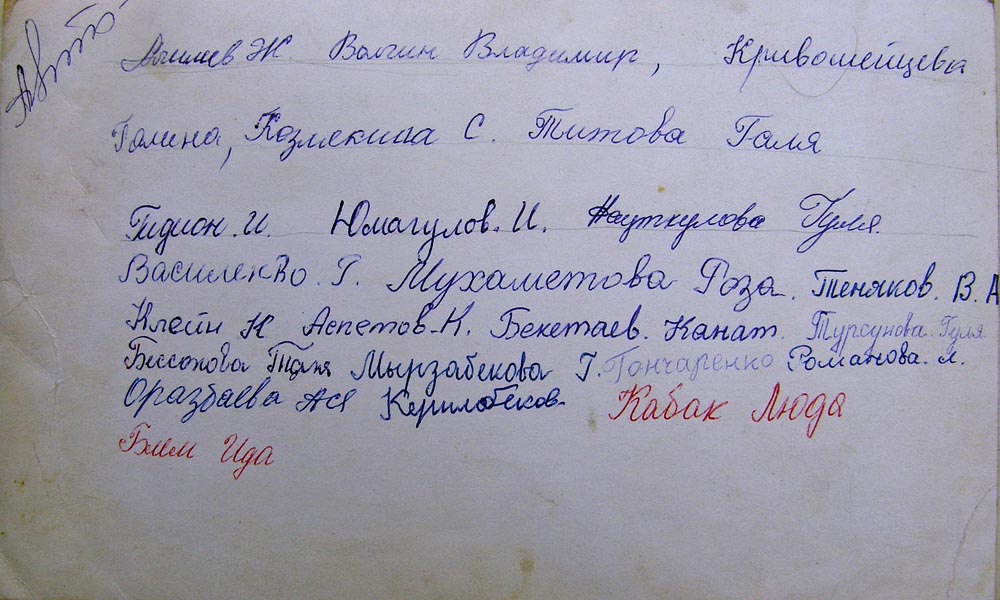 Ж. Волгин Владимир, Кривошейцева
Галина, Козлекина С. Титова Галя
Гидион. И. Юмагулов. И. Гуля.
Василенко. Г. Мухаметова Роза. Теняков. В. А
Клейн К Аспетов. К. Бекетаев. Канат. Турсунова. Гуля
Таня Мырзабекова Г. Гончаренко Романова. л.
Оразбаева Ася Керимбеков Кабак Люда
Блем Ида